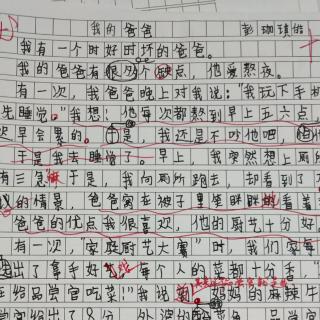 我的爸爸 彭珈
我有一个时好时坏的爸爸。
我的爸爸有很多个缺点，他爱熬夜。
有一次，我爸爸晚上对我说："我玩下手机
先睡觉。"我想：他每次都熬到早上五六点，
早会累的。于是，我还是不吵他吧
于是我去睡觉了。早上，我突然想上厕
有三急嘛于是，我向厕所跑去，却看到了
的情景，爸爸窝在被子里坐眯眯
爸爸的优点我很喜欢，他的厨艺十分好
有一次，"家庭厨艺大赛"时，我们家每
出了拿手好 每个人的菜都十分香，
在给品尝官吃菜！"我说 妈妈的麻辣牛
尝官给出了8分，外婆的